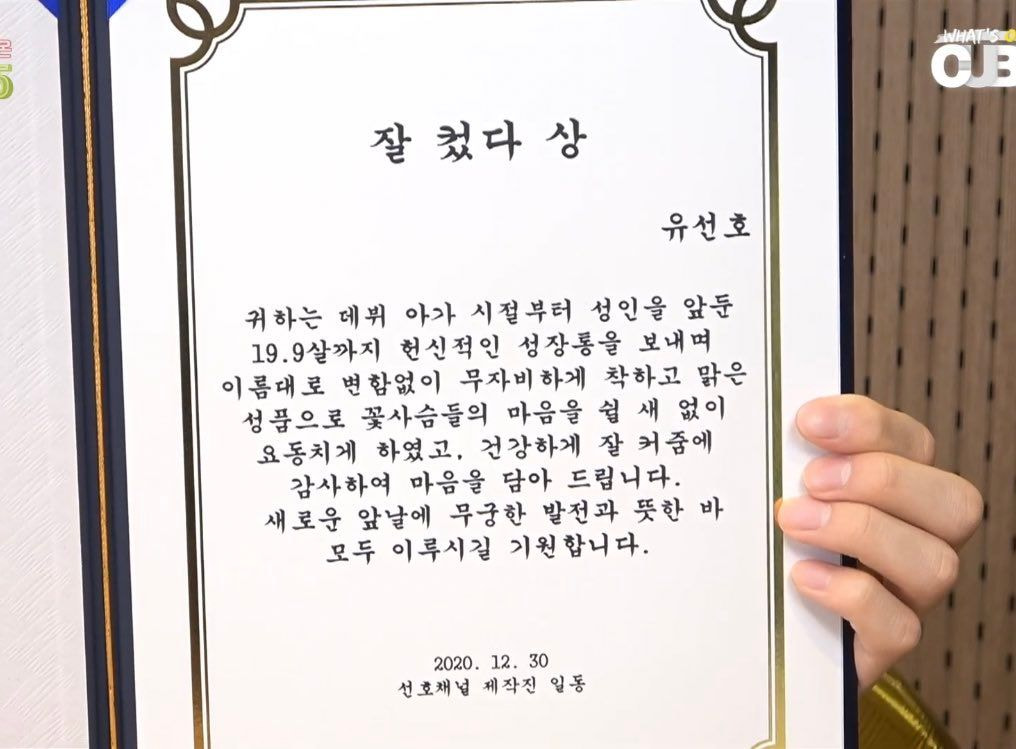 WHAT'S
CUB
5
잘 컸다 상
유선호
귀하는 데뷔 아가 시절부터 성인을 앞둔
19.9살까지 헌신적인 성장통을 보내며
이름대로 변함없이 무자비하게 착하고 맑은
성품으로 꽃사슴들의 마음을 쉴 새 없이
요동치게 하였고, 건강하게 잘 커줌에
감사하여 마음을 담아 드립니다.
새로운 앞날에 무궁한 발전과 뜻한 바
모두 이루시길 기원합니다.
2020. 12. 30
선호채널 제작진 일동